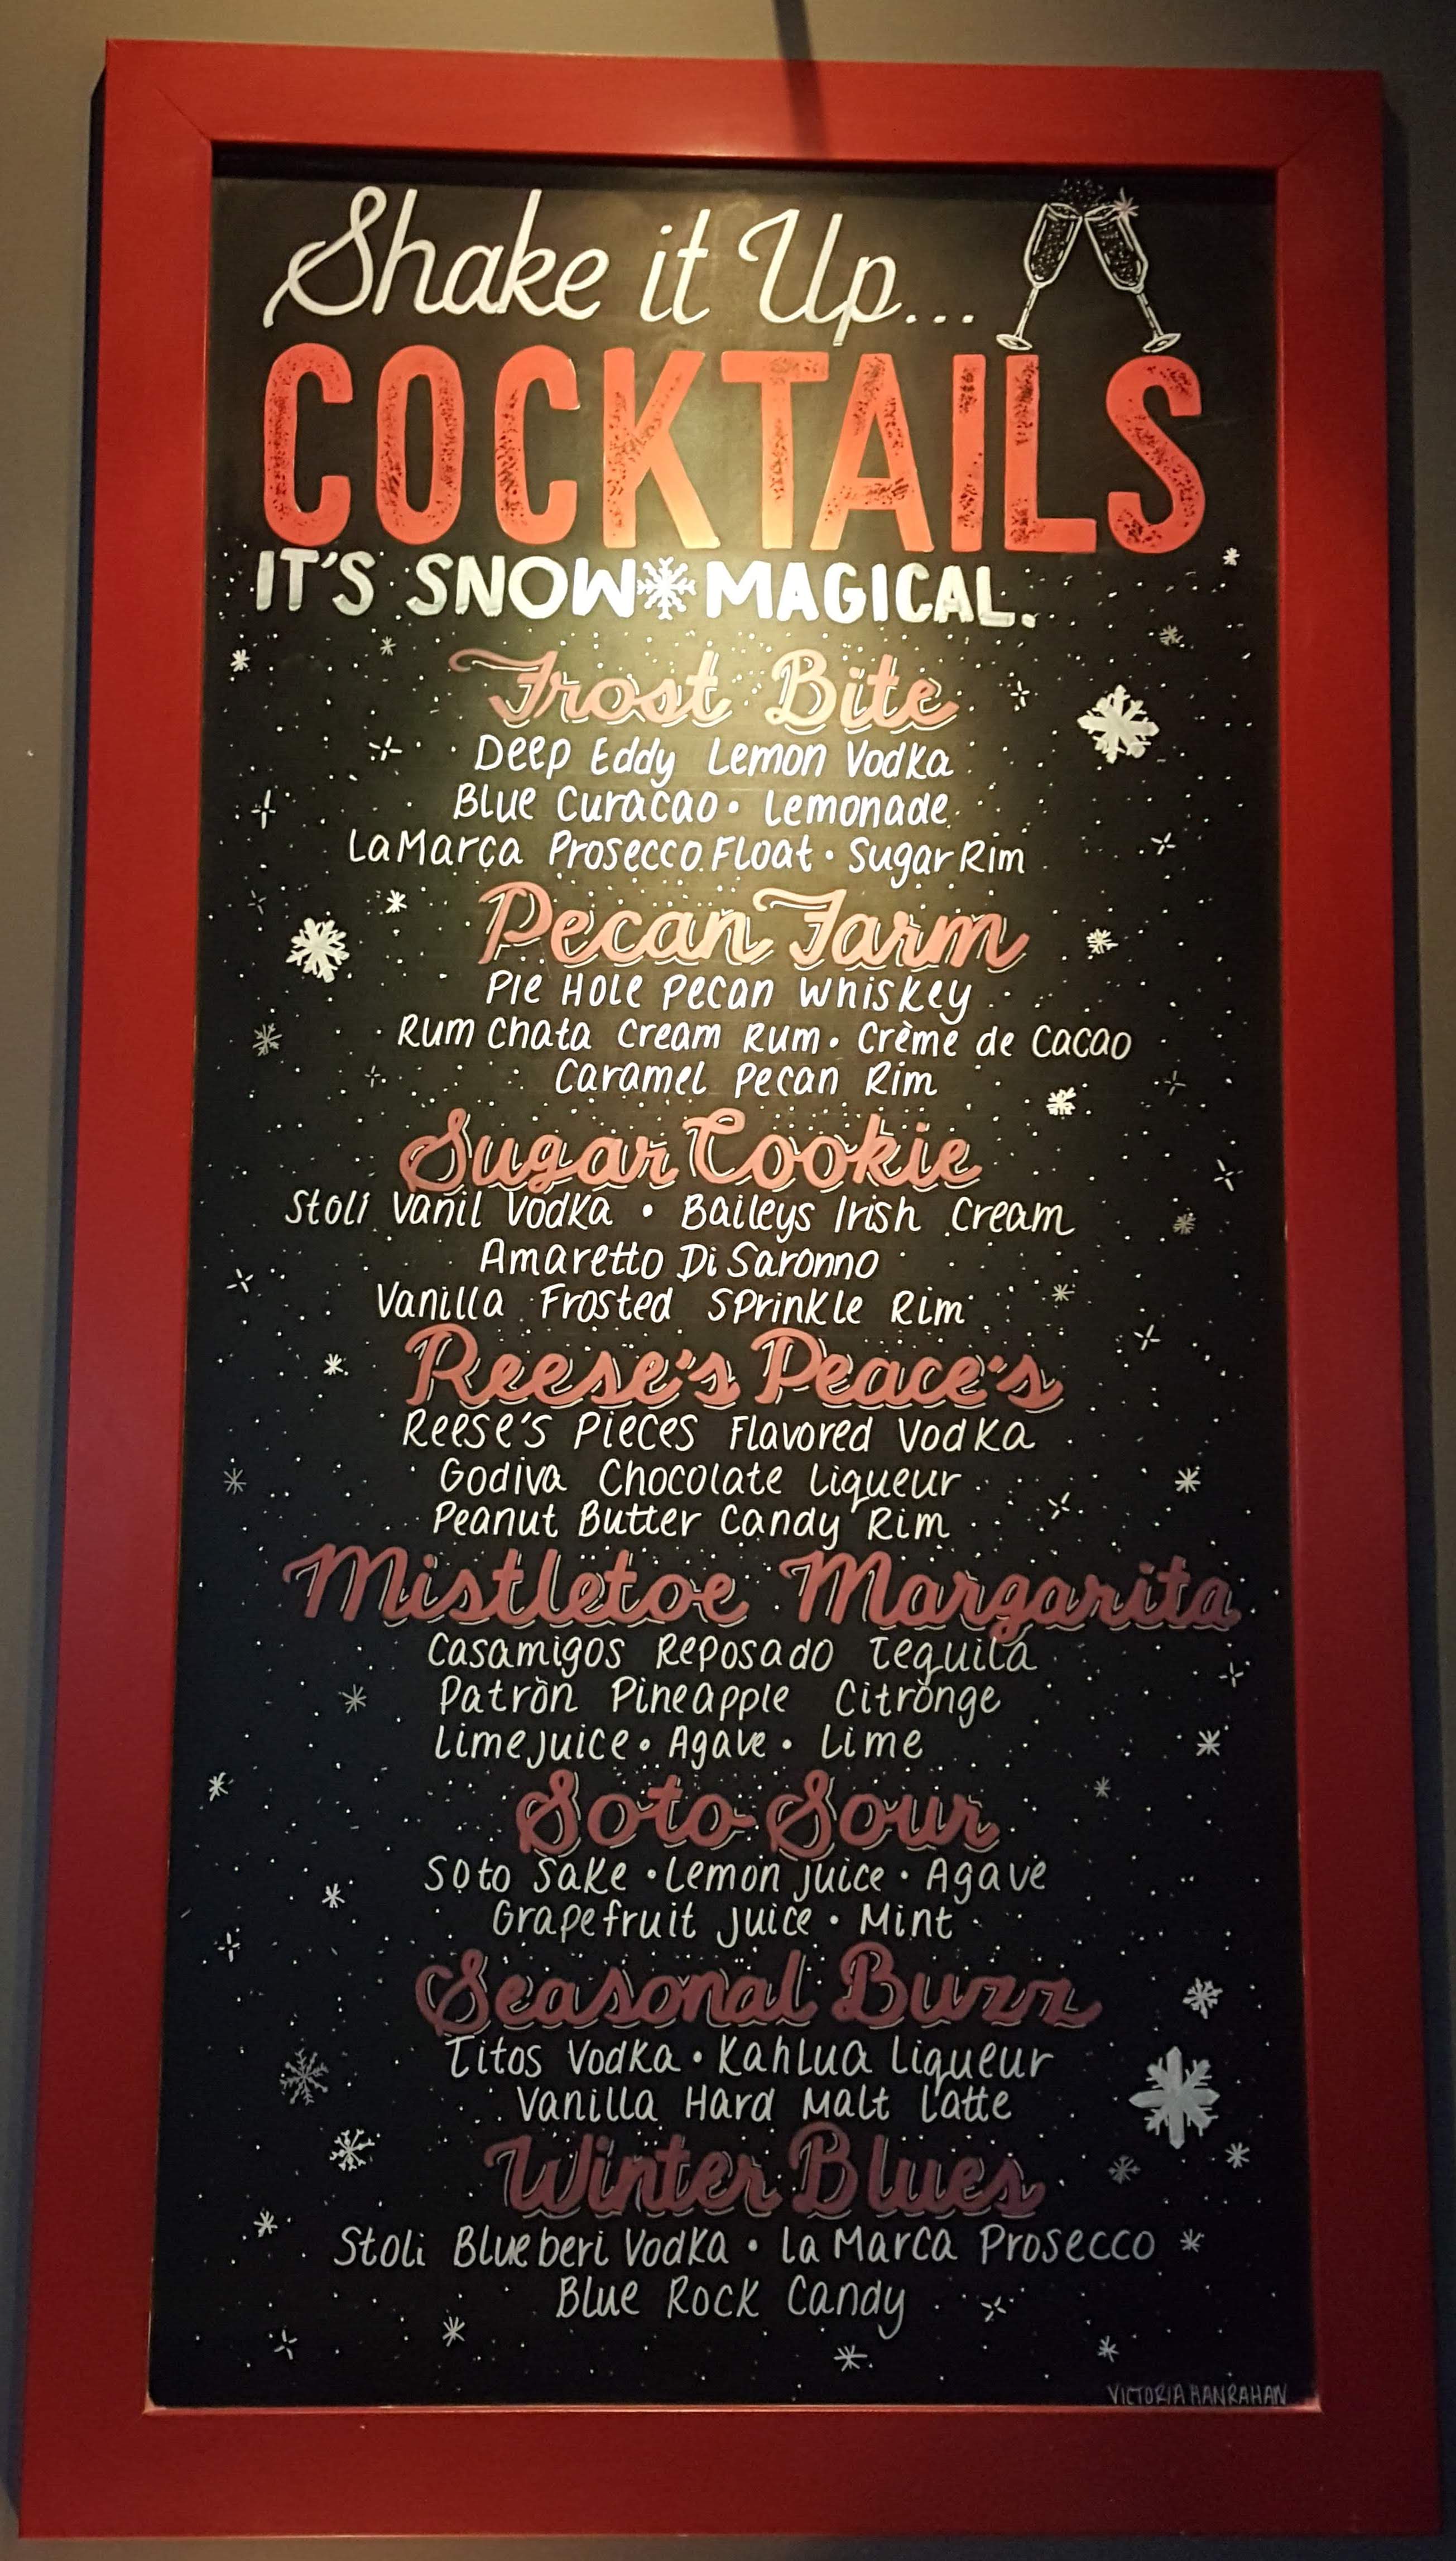 Shake it Up...
COCKTAILS
IT'S SNOW MAGICAL.
Frost Bite
Deep Eddy Lemon Vodka
Blue Curacao • Lemonade
LaMarca Prosecco Float • Sugar Rim
Pecan Farm
Pie Hole Pecan Whiskey
Rum Chata Cream Rum • Crème de Cacao
Caramel Pecan Rim
Sugar Cookie
Stoli Vanil Vodka • Baileys Irish Cream
Amaretto Di Saronno
Vanilla Frosted Sprinkle Rim
Reese's Peace's
Reese's Pieces Flavored Vodka
Godiva Chocolate Liqueur
Peanut Butter Candy Rim
Mistletoe Margarita
Casamigos Reposado Tequila
Patròn Pineapple Citrònge
Lime Juice • Agave • Lime
Soto Sour
Soto Sake • Lemon Juice • Agave
Grapefruit Juice • Mint
Seasonal Buzz
Titos Vodka • Kahlua Liqueur
Vanilla Hard Malt Latte
Winter Blues
Stoli Blueberi Vodka • La Marca Prosecco
Blue Rock Candy
VICTORIA HANRAHAN